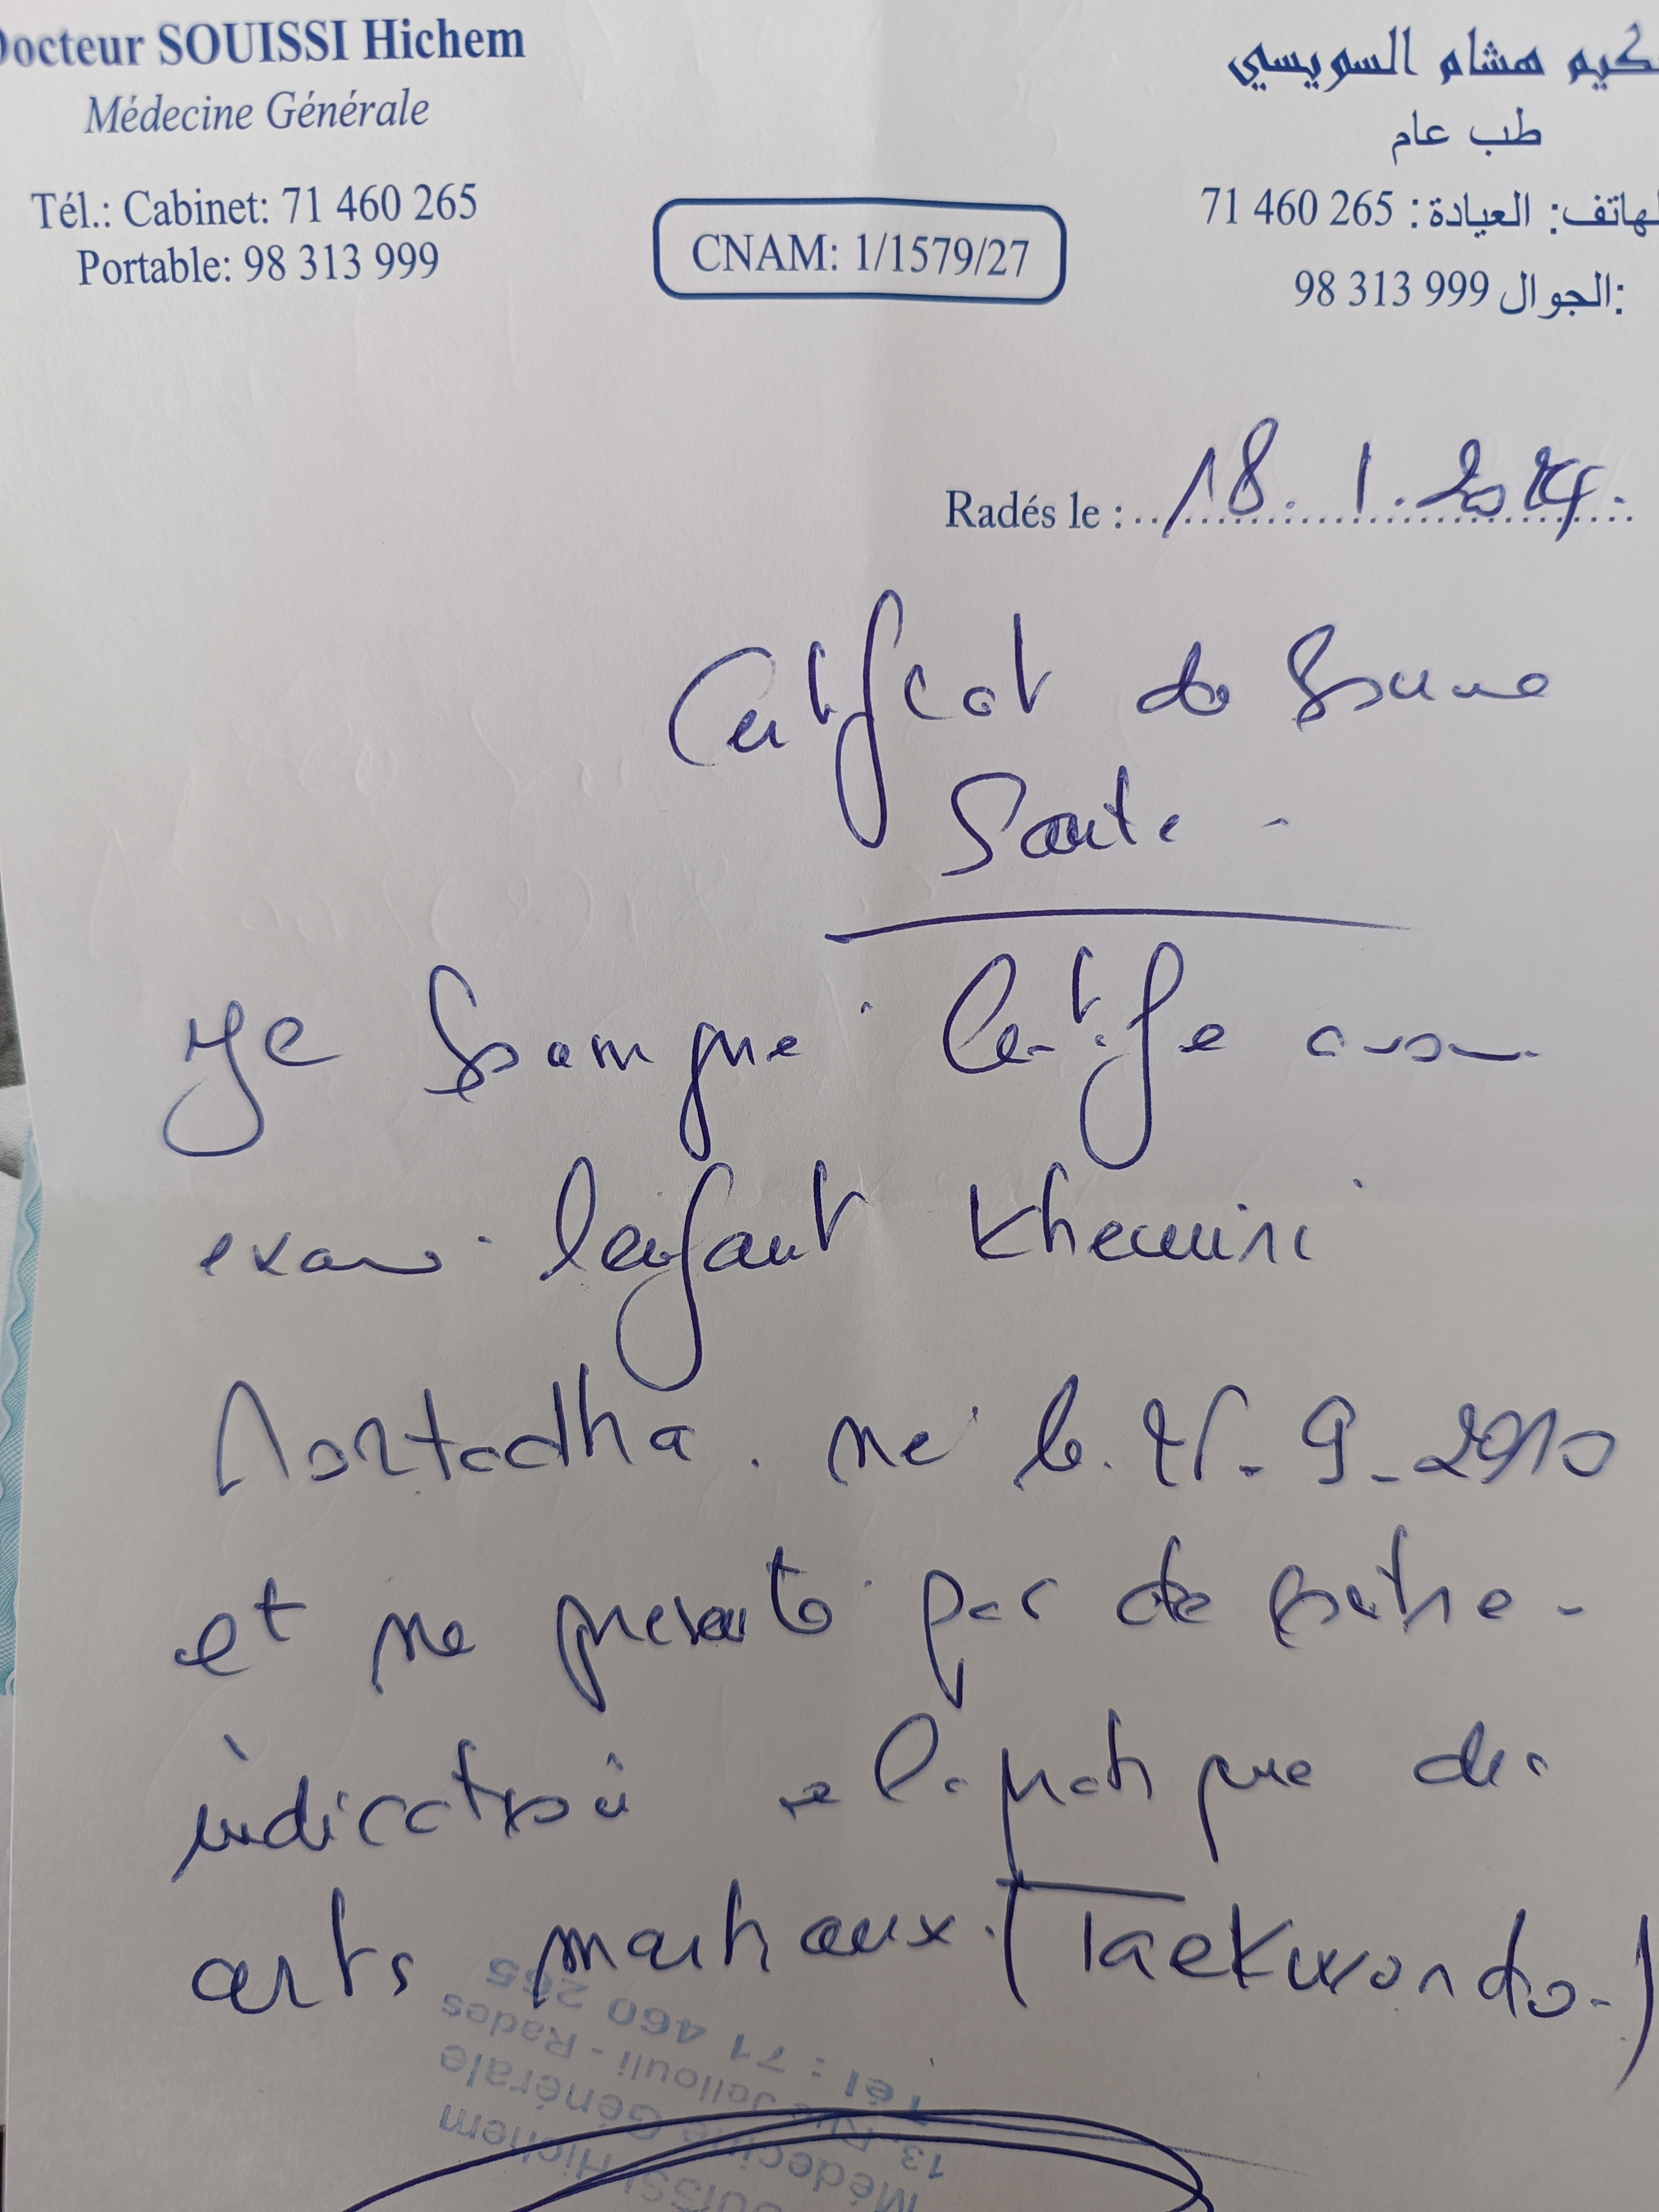 Docteur SOUISSI Hichem
Médecine Générale
Tél.: Cabinet: 71 460 265
Portable: 98 313 999
CNAM: 1/1579/27
كيم هشام السويسي
طب عام
لهاتف: العيادة: 265 460 71
الجوال: 999 313 98
Radés le : 18. 1. 2024.
Certificat de Bonne
Santé -
Je soussigné certifie avoir
examiné l'enfant Khemiri
Mortadha. né le. - 9 - 2010
et ne présente pas de contre -
indication à la pratique des
arts martiaux. (Taekwondo.)
Tél : 71 460 265
13, Rue Jellouli - Rades
Médecine Générale
OUISSI Hichem